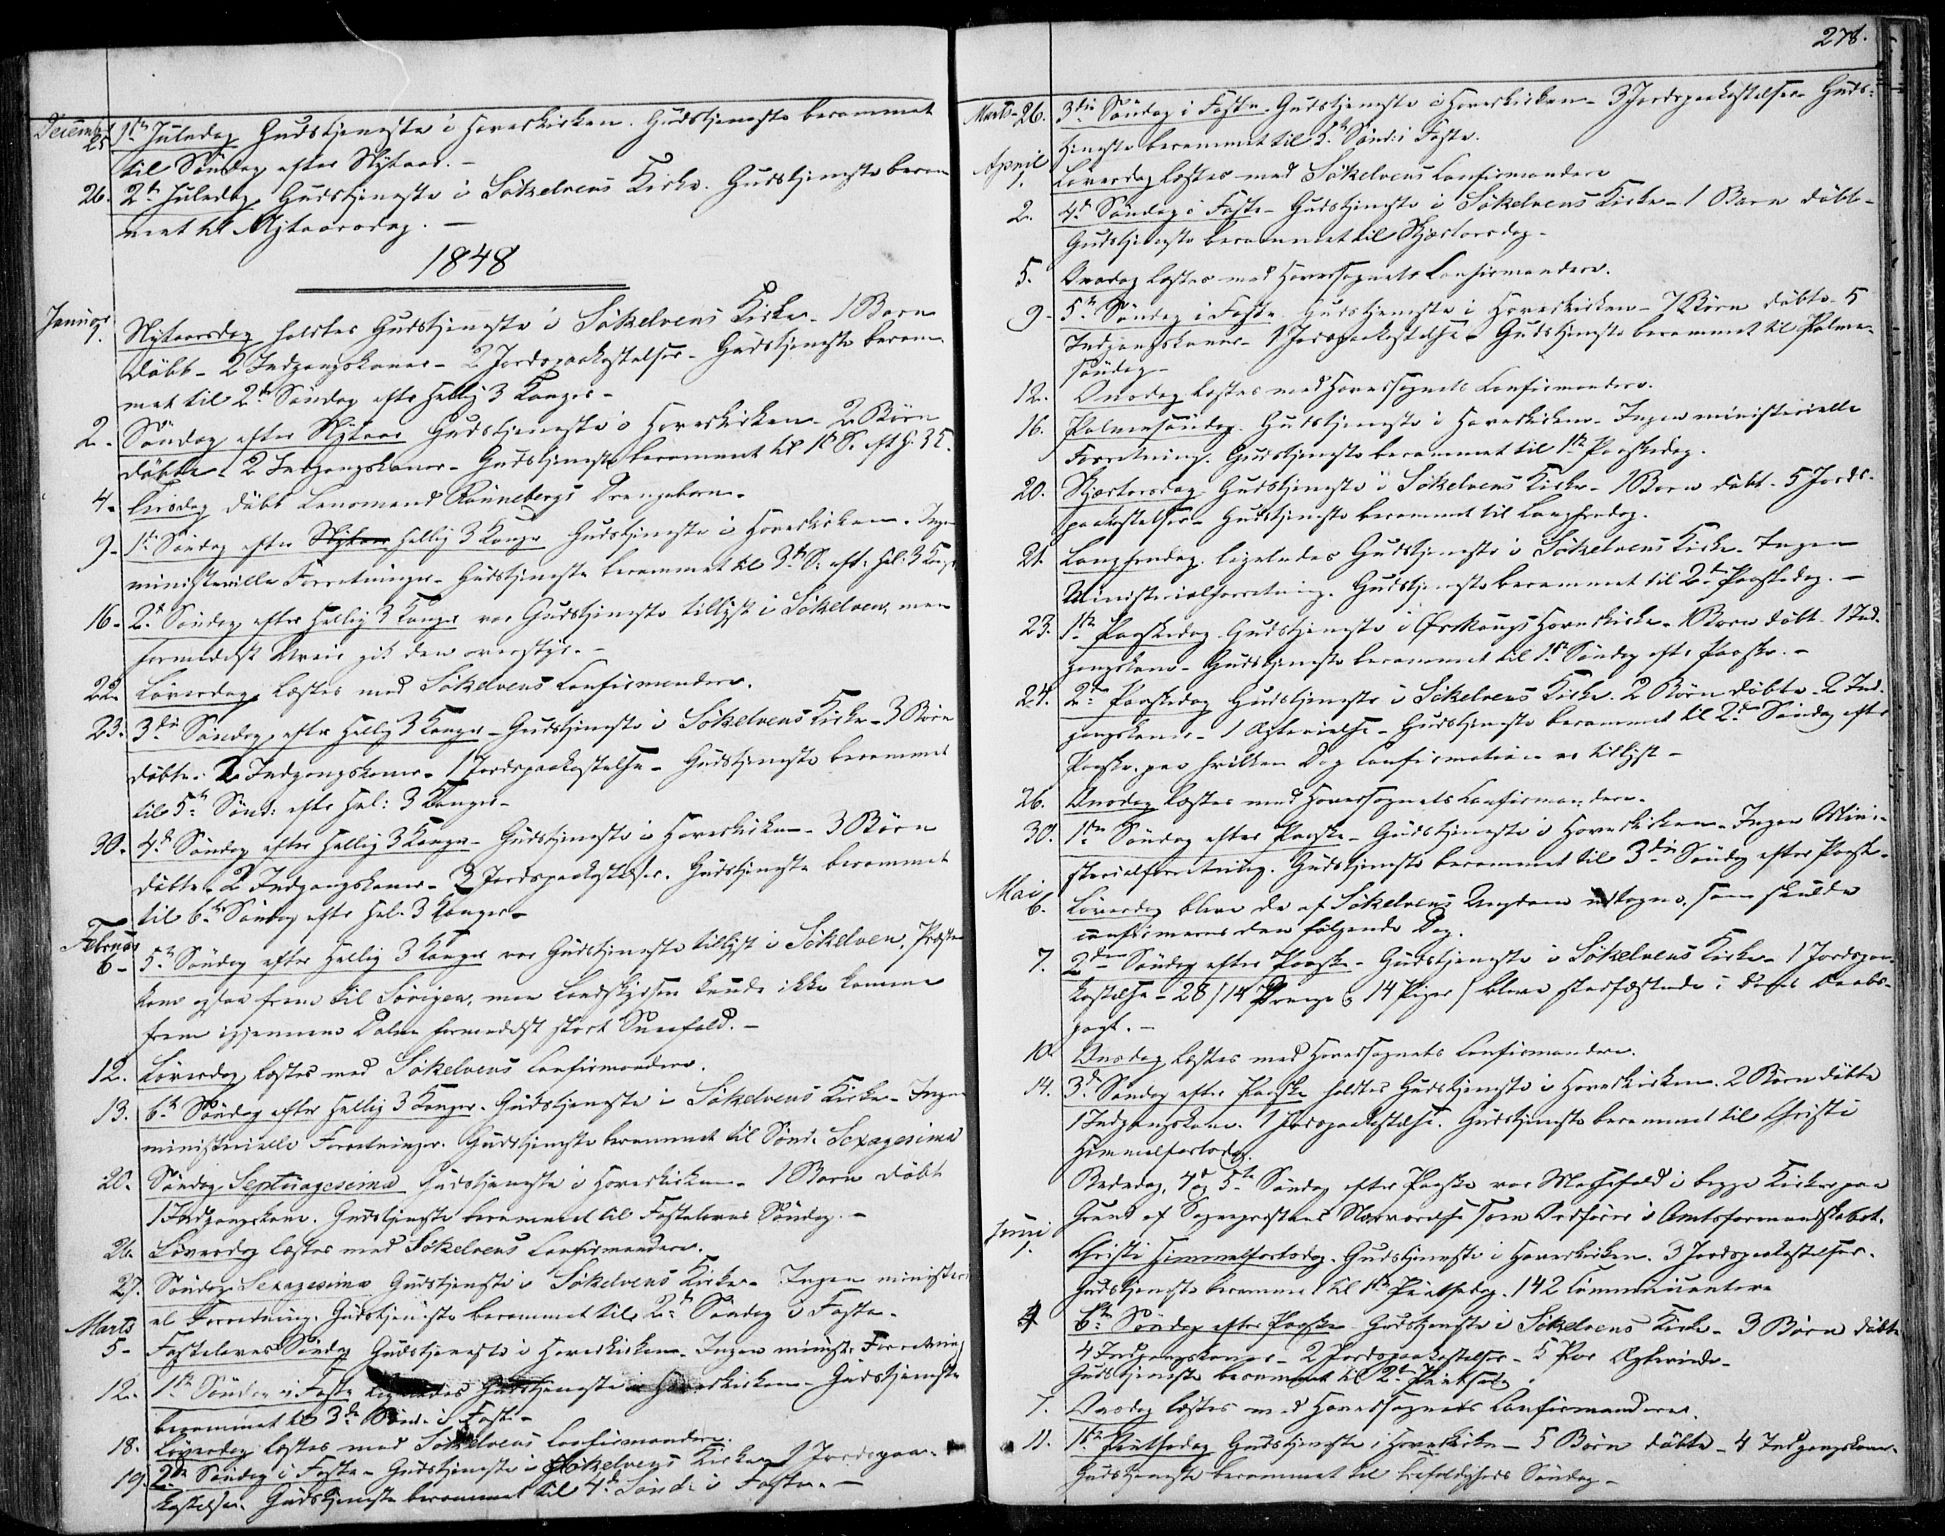 Decembr 25 1ste Juledag Gudstjeneste i Hovedkirken. Gudstjeneste berammet
til Søndag efter Nytaar. –
26. 2d Juledag Gudstjeneste i Søkelvens Kirke. Gudstjeneste beram
met til Nytaarsdag. –
1848
Januar 1. Nytaarsdag holdtes Gudstjeneste i Søkelvens Kirke – 1 Barn
døbt – 2 Indgangskoner – 2 Jordspaakastelser – Gudstjeneste beram
met til 2den Søndag eftr Hellig 3 Konger –
2. Søndag efter Nytaar Gudstjeneste i Hovedkirken – 2 Børn
døbte – 2 Indgangskoner – Gudstjeneste berammet til 1ste S. eft H. 3 K.
4. Tirsdag døbt Lensmand Rønnebergs Drengebarn.
9 – 1ste Søndag efter Nytaar Hellig 3 Konger Gudstjeneste i Hovedkirken. Ingen
ministerielle Forretninger – Gudstjeneste berammet til 3die S. eft: Hel: 3 Kong
16 – 2d Søndag efter Hellig 3 Konger var Gudstjeneste tillyst i Søkelven, men
formedelst Uveir gik den overstyr. –
22. Løverdag læstes med Søkelvens Confirmander.
23. 3die Søndag efter Hellig 3 Konger – Gudstjeneste i Søkelvens Kirke – 3 Børn
døbte – 2 Indgangskoner – 1 Jordspaakastelse – Gudstjeneste berammet
til 5te Sønd: eftr Hel: 3 Konger –
30. 4de Søndag efter Hellig 3 Konger – Gudstjeneste i Hovedkirken – 3 Børn
døbte – 2 Indgangskoner – 3 Jordspaakastelser. Gudstjeneste berammet
til 6te Søndag eftr Hel. 3 Konger –
Februar 6 – 5te Søndag efter Hellig 3 Konger var Gudstjeneste tillyst i Søkelven, Præsten
kom ogsaa frem til men Landskydsen kunde ikke komme
frem igjennem Dalen formedelst stort Sneefald. –
12. Løverdag læstes med Søkelvens Confirmander.
13. 6te Søndag efter Hellig 3 Konger. Gudstjeneste i Søkelvens Kirke – Ingen
ministerielle Forretninger. Gudstjeneste berammet til Sønd. Sexagesima
20. Søndag Septuagesima Gudstjeneste i Hovedkirken – 1 Barn døbt
1 Indgangskone. Gudstjeneste berammet til Fastelavns Søndag. –
26. Løverdag læstes med Søkelvens Confirmander.
27. Søndag Sexagesima Gudstjeneste i Søkelvens Kirke – Ingen ministeri
el Forretning. Gudstjeneste berammet til 2den Søndag i Faste –
Marts 5 – Fastelavns Søndag Gudstjeneste i Hovedkirken. Ingen minist: Forretning
12. 1ste Søndag i Faste Ligeledes Gudstjeneste i Hovedkirken – Gudstjeneste
berammet til 3die Sønd: i Faste –
18. Løverdag læstes med Søkelvens Confirmander.
19. 2den Søndag i Faste – Gudstjeneste i Søkelvens Kirke 1 Jordspaa-
kastelse. Gudstjeneste berammet til 4de Sønd: i Faste. –
278.
Marts 26. 3die Søndag i Faste Gudstjeneste i Hovedkirken – 3 Jordspaakastelser Guds-
tjeneste berammet til 5te Sønd: i Faste.
April 1. Løverdag læstes med Søkelvens Confirmander
2. 4de Søndag i Faste – Gudstjeneste i Søkelvens Kirke – 1 Barn døbt –
Gudstjeneste berammet til Skjærtorsdag –
5. Onsdag læstes med Hovedsognets Confirmander.
9 – 5te Søndag i Faste Gudstjeneste i Hovedkirken – 7 Børn døbte – 5
Indgangskoner – 1 Jordspaakastelse – Gudstjeneste berammet til Palme
søndag –
12. Onsdag læstes med Hovedsognets Confirmander.
16. Palmesøndag. Gudstjeneste i Hovedkirken – Ingen ministerielle
Forretning. Gudstjeneste berammet til 1ste Paaskedag.
20. Skjærtorsdag Gudstjeneste i Søkelvens Kirke – 1 Barn døbt – 5 Jords-
paakastelser – Gudstjeneste berammet til Langfredag.
21. Langfredag. ligeledes Gudstjeneste i Søkelvens Kirke – Ingen
Ministerialforretning. Gudstjeneste berammet til 2den Paaskedag. –
23. 1ste Paaskedag Gudstjeneste i Ørskougs Hovedkirke – 1 Barn døbt – 1 Ind-
gangskone – Gudstjeneste berammet til 1ste Søndag eftr Paaske. –
24. 2den Paaskedag Gudstjeneste i Søkelvens Kirke. 2 Børn døbte – 2 Ind-
gangskoner – 1 Ægtevielse – Gudstjeneste berammet til 2den Søndag efter
Paaske, paa hvilken Dag Confirmation er tillyst –
26. Onsdag læstes med Hovedsognets Confirmander.
30. 1ste Søndag efter Paaske – Gudstjeneste i Hovedkirken – Ingen Mini-
sterialforretning. Gudstjeneste berammet til 3die Søndag efter Paaske.
Mai 6. Løverdag bleve de af Søkelvens Ungdom som skulde
confirmeres den følgende Dag.
7. 2den Søndag efter Paaske – Gudstjeneste i Søkelvens Kirke – 1 Jordspaa-
kastelse – 28 /14 Drenge & 14 Piger/ bleve stadfæstede i deres Daabs-
pagt. –
10. Onsdag læstes med Hovedsognets Confirmander.
14. 3de Søndag efter Paaske holdtes Gudstjeneste i Hovedkirken. 2 Børn døbte
1 Indgangskone. 1 Jordspaakastelse. Gudstjeneste berammet til Christi
Himmelfartsdag.
Bededag, 4de og 5te Søndag efter Paaske var Messefald i begge Kirker paa
Grund af Sognepræstens som Ordfører i Amtsformandskabet.
Juni 1. Christi Himmelfartsdag. Gudstjeneste i Hovedkirken. 3 Jordspaakastelser.
Gudstjeneste berammet til 1ste Pintsedag. 142 Communicantere
4 6te Søndag efter Paaske Gudstjeneste i Søkelvens Kirke – 3 Børn døbte
4 Indgangskoner – 2 Jordspaakastelser – Par Ægteviede –
Gudstjeneste berammet til 2den Pintsedag.
7. Onsdag læstes med Hovedsognets Confirmander.
11. 1ste Pintsedag Gudstjeneste i Hovedkirken – 5 Børn døbte – 4 Indgangskoner
Gudstjeneste berammet til Trefoldigheds Søndag –